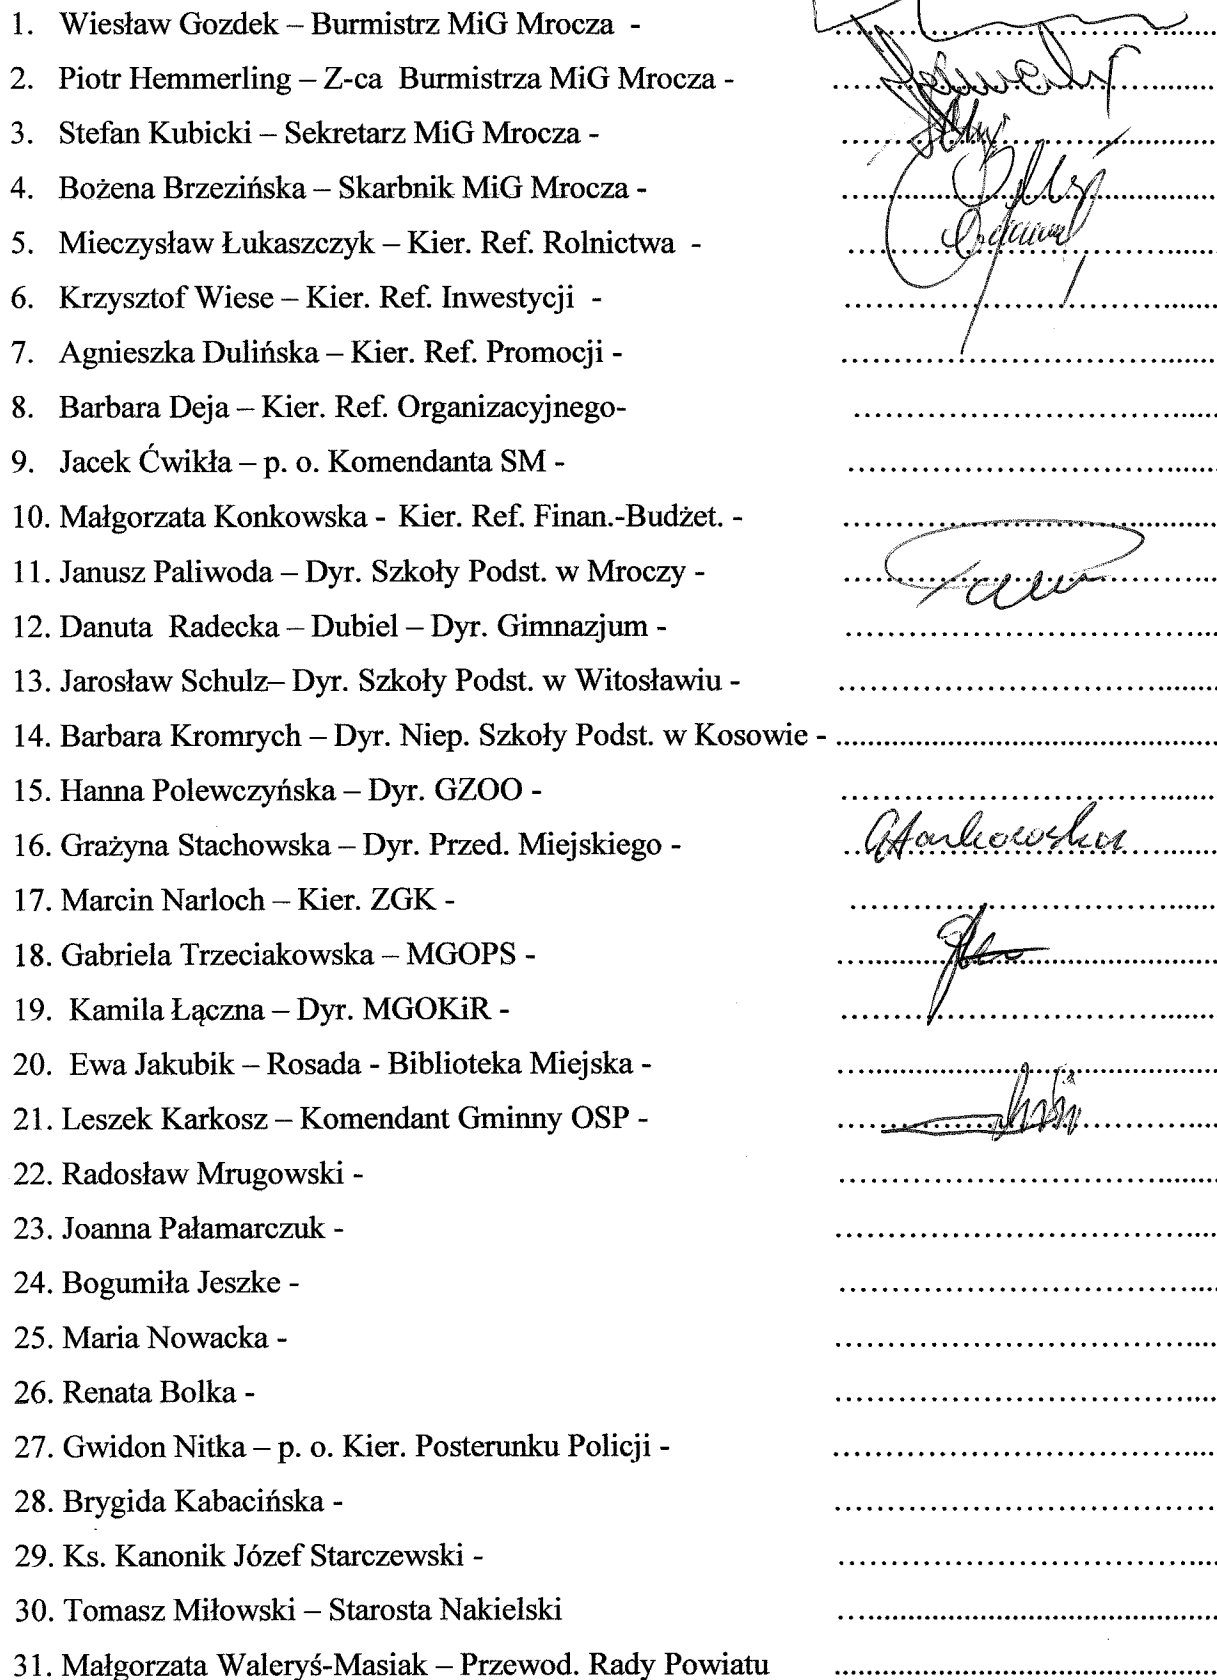 1. Wiesław Gozdek – Burmistrz MiG Mrocza - ....................................
2. Piotr Hemmerling – Z-ca Burmistrza MiG Mrocza - ....................................
3. Stefan Kubicki – Sekretarz MiG Mrocza - ....................................
4. Bożena Brzezińska – Skarbnik MiG Mrocza - ....................................
5. Mieczysław Łukaszczyk – Kier. Ref. Rolnictwa - ....................................
6. Krzysztof Wiese – Kier. Ref. Inwestycji - ....................................
7. Agnieszka Dulińska – Kier. Ref. Promocji - ....................................
8. Barbara Deja – Kier. Ref. Organizacyjnego- ....................................
9. Jacek Ćwikła – p. o. Komendanta SM - ....................................
10. Małgorzata Konkowska - Kier. Ref. Finan.-Budżet. - ....................................
11. Janusz Paliwoda – Dyr. Szkoły Podst. w Mroczy - ....................................
12. Danuta Radecka – Dubiel – Dyr. Gimnazjum - ....................................
13. Jarosław Schulz– Dyr. Szkoły Podst. w Witosławiu - ....................................
14. Barbara Kromrych – Dyr. Niep. Szkoły Podst. w Kosowie - ....................................
15. Hanna Polewczyńska – Dyr. GZOO - ....................................
16. Grażyna Stachowska – Dyr. Przed. Miejskiego - ....................................
17. Marcin Narloch – Kier. ZGK - ....................................
18. Gabriela Trzeciakowska – MGOPS - ....................................
19. Kamila Łączna – Dyr. MGOKiR - ....................................
20. Ewa Jakubik – Rosada - Biblioteka Miejska - ....................................
21. Leszek Karkosz – Komendant Gminny OSP - ....................................
22. Radosław Mrugowski - ....................................
23. Joanna Pałamarczuk - ....................................
24. Bogumiła Jeszke - ....................................
25. Maria Nowacka - ....................................
26. Renata Bolka - ....................................
27. Gwidon Nitka – p. o. Kier. Posterunku Policji - ....................................
28. Brygida Kabacińska - ....................................
29. Ks. Kanonik Józef Starczewski - ....................................
30. Tomasz Miłowski – Starosta Nakielski ....................................
31. Małgorzata Waleryś-Masiak – Przewod. Rady Powiatu ....................................